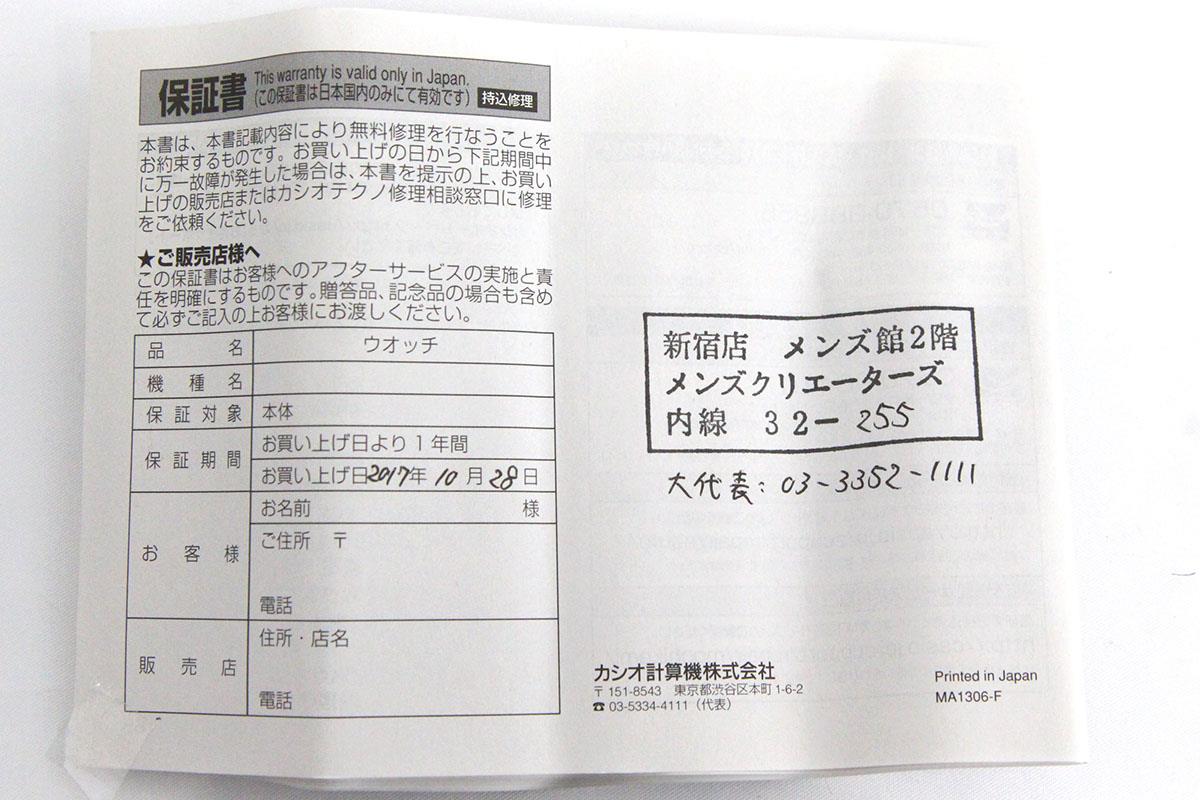 保証書 This warranty is valid only in Japan.
(この保証書は日本国内のみにて有効です) 持込修理
本書は、本書記載内容により無料修理を行なうことを
お約束するものです。お買い上げの日から下記期間中
に万一故障が発生した場合は、本書を提示の上、お買い
上げの販売店またはカシオテクノ修理相談窓口に修理
をご依頼ください。
★ご販売店様へ
この保証書はお客様へのアフターサービスの実施と責
任を明確にするものです。贈答品、記念品の場合も含め
て必ずご記入の上お客様にお渡しください。
品名 ウオッチ
機種名
保証対象 本体
保証期間 お買い上げ日より1年間
お買い上げ日2017年 10 月 28 日
お客様 お名前 様
ご住所 〒
電話
販売店 住所・店名
電話
新宿店 メンズ館2階
メンズクリエーターズ
内線 32-255
大代表: 03-3352-1111
カシオ計算機株式会社
〒151-8543 東京都渋谷区本町1-6-2
☎ 03-5334-4111(代表)
Printed in Japan
MA1306-F